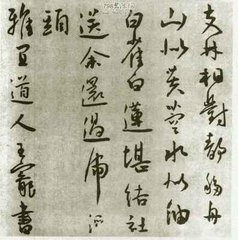 相對舟
山似芙蓉水似油
白雀白蓮堪結社
送余還過虎溪
頭
雅宜道人王寵書